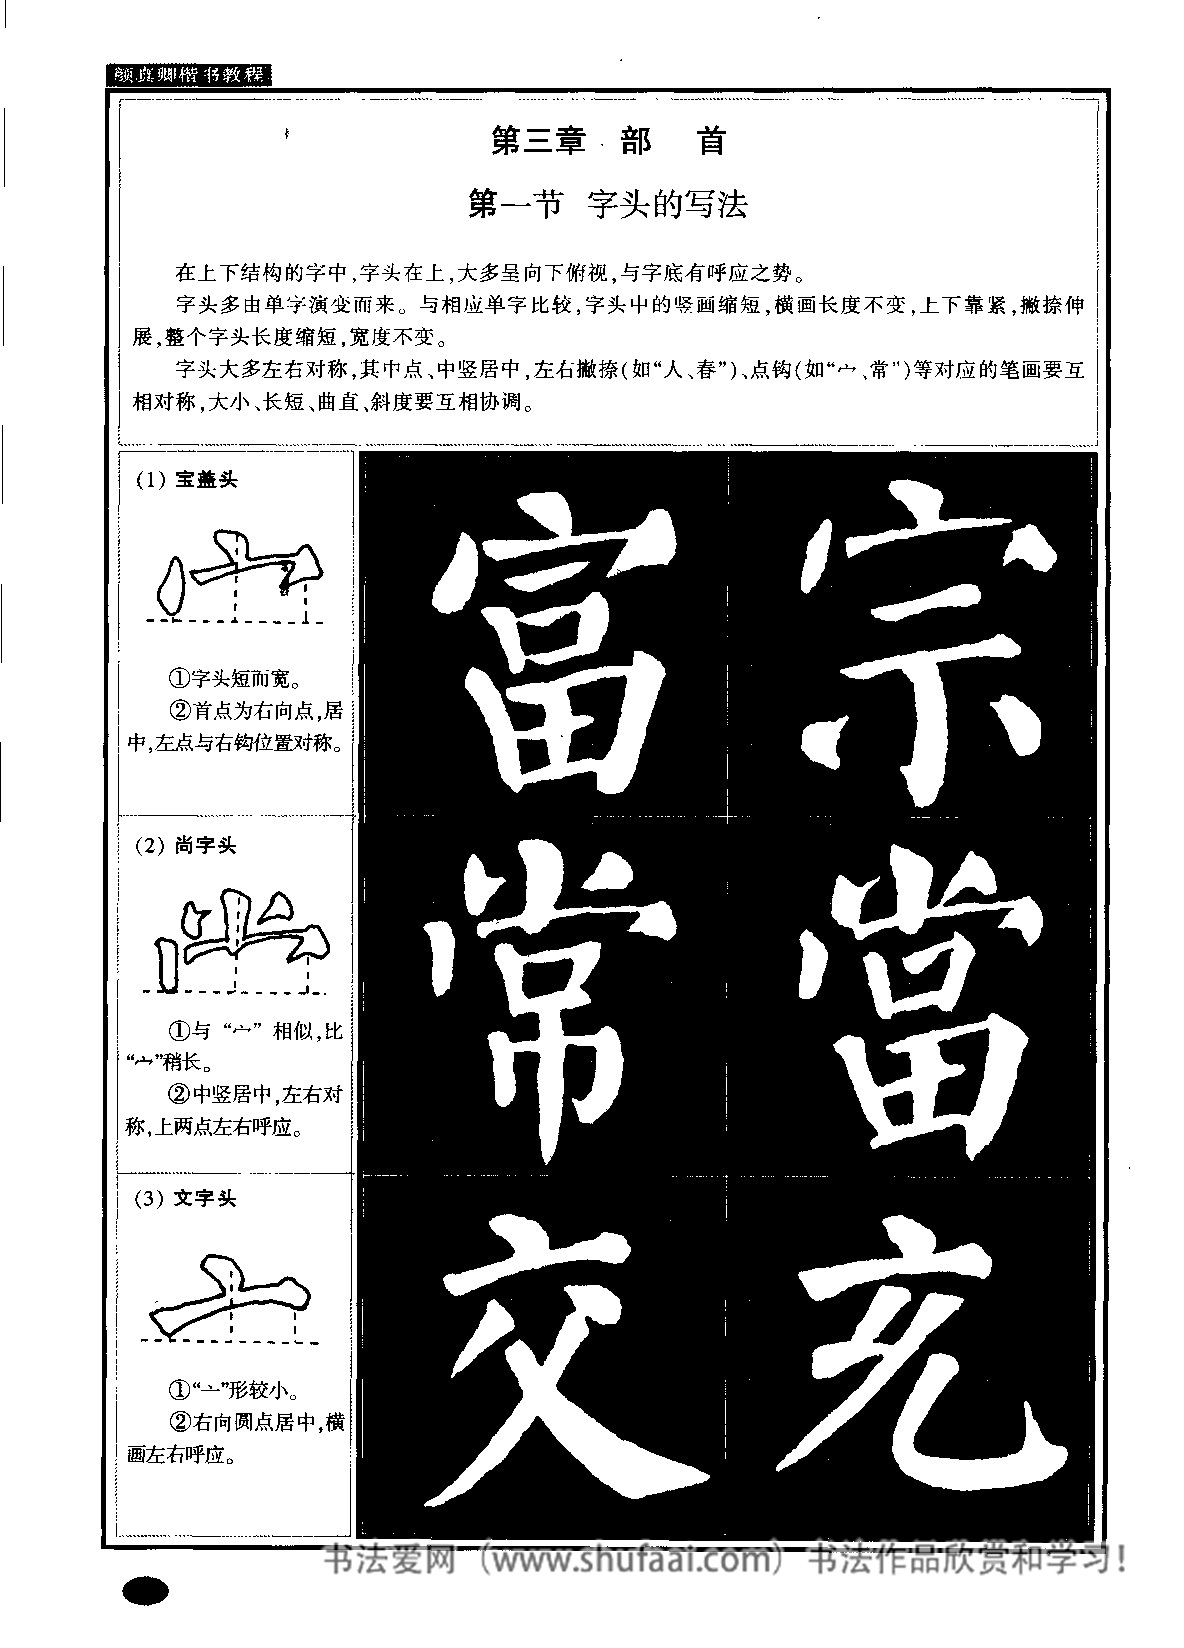 颜真卿楷书教程
第三章 部 首
第一节 字头的写法
在上下结构的字中,字头在上,大多呈向下俯视,与字底有呼应之势。
字头多由单字演变而来。与相应单字比较,字头中的竖画缩短,横画长度不变,上下靠紧,撇捺伸
展,整个字头长度缩短,宽度不变。
字头大多左右对称,其中点、中竖居中,左右撇捺(如“人、春”)、点钩(如“宀、常”)等对应的笔画要互
相对称,大小、长短、曲直、斜度要互相协调。
(1) 宝盖头
①字头短而宽。
②首点为右向点,居
中,左点与右钩位置对称。
富 宗
(2) 尚字头
①与“宀”相似,比
“宀”稍长。
②中竖居中,左右对
称,上两点左右呼应。
常 當
(3) 文字头
①“亠”形较小。
②右向圆点居中,横
画左右呼应。
交 充
书法爱网（www.shufaai.com）书法作品欣赏和学习！